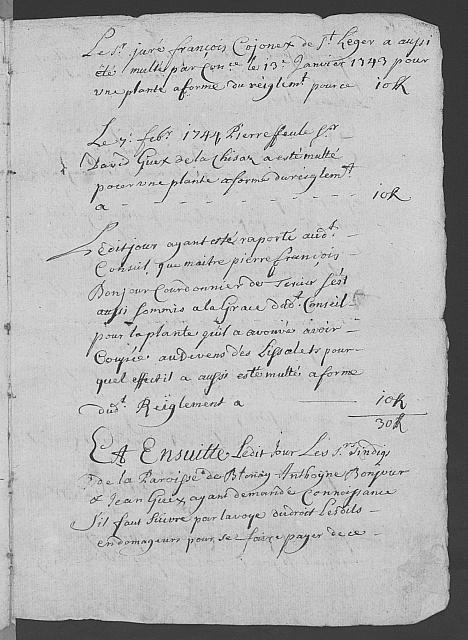 Le Sr. juré françois Cojonex de St. Leger a aussi
été multé par Con.ce le 13e. Janvier 1743 pour
une plante a forme du réiglemt. pour ce 10 ß
Le 7. febr. 1744 Pierre feu le Sr.
David Guex de la Chisaz a esté multé
pour une plante a forme du réiglemt.
a - - - - - - - 10 ß
Ledit jour ayant esté raporté audt. -
Conseil, que maitre pierre françois -
Bonjour Courdonnier de s'est
aussi sommis a la Grace dudt. Conseil
pour la plante qu'il a avouée avoir -
Coupée au Devens des Lissalets pour-
quel effect il a aussi esté multé a forme
dust. Reiglement a 10 ß
30 ß
Et Ensuitte Ledit Jour Les Srs. Sindiqs
de la Paroisse de Blonay Anthoyne Bonjour
& Jean Guex, ayant demandé Connoissance
S'il faut suivre par la voye du droit Lesdits -
endomageurs pour se faire payer de ce -